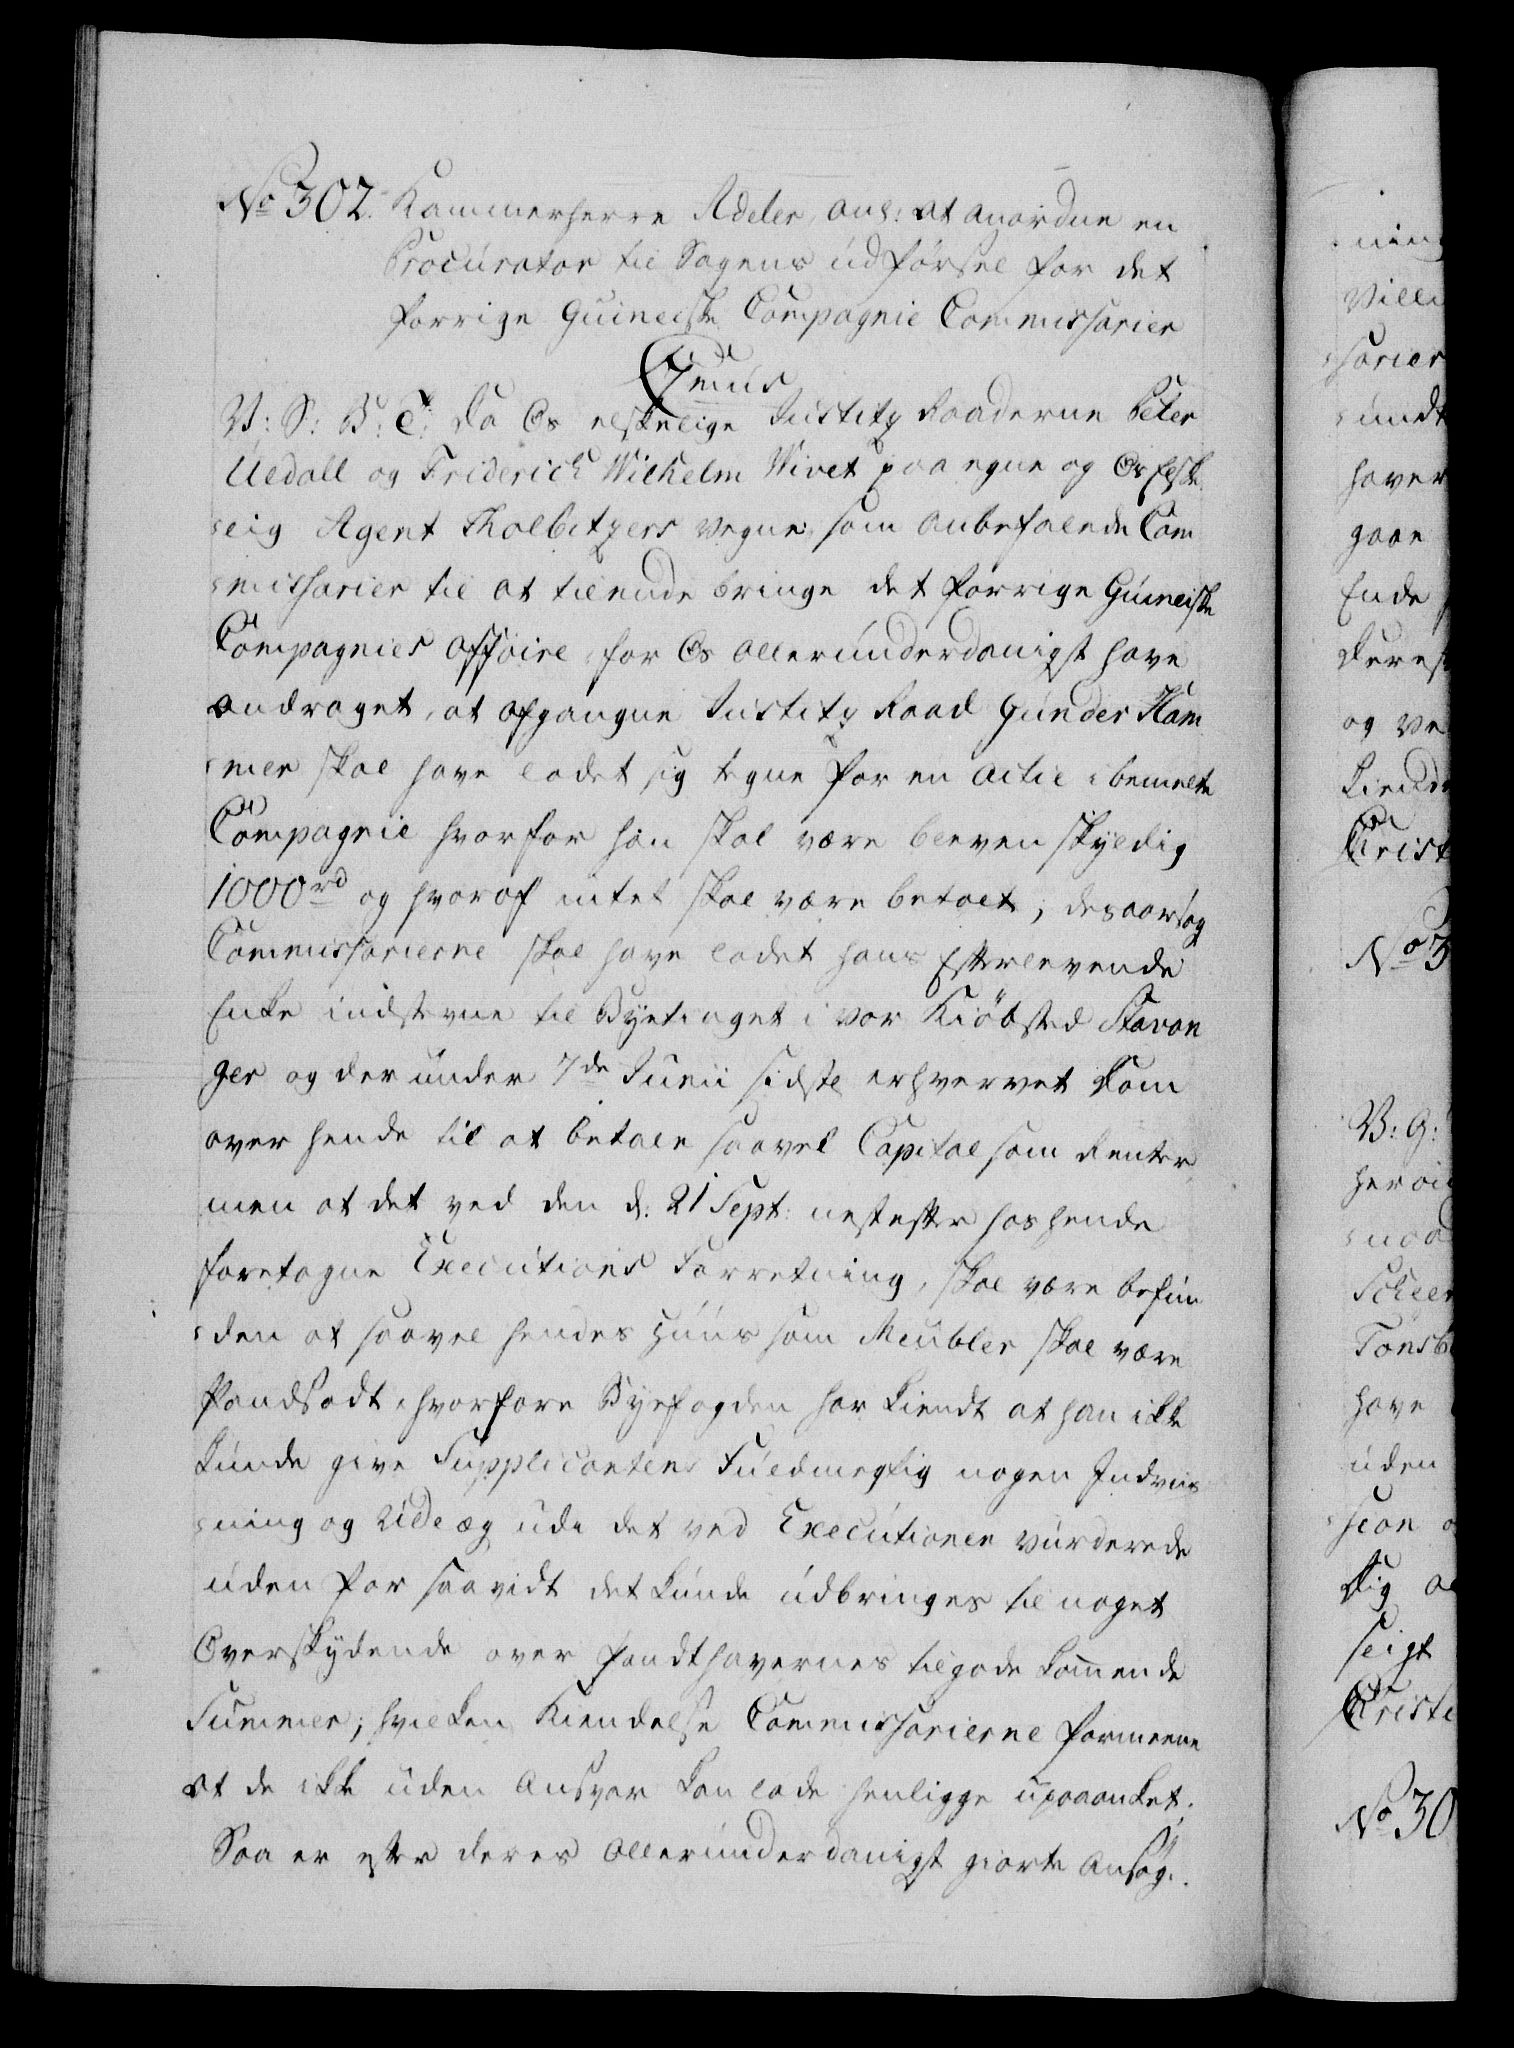 No 302. Kammerherre Adeler, anl: at anordne en
Procurator til Sagens udførsel for det
forrige Guineiske Compagnie Commissarier
C 7mus
V: S: B: T: Da Os elskelige Justitz Raaderne Peter
Uedall og Friderich Wilhelm Wivet paa egne og Os Elske
-lig Agent Kholbitzers vegne, som anbefalede Com
-missarier til at tilende bringe det forrige Guineiske
Compagnies Affaire, for Os allerunderdanigst have
andraget, at afgangne Justitz Raad Gunder Ham
-mer skal have ladet sig tegne for en Actie i bemelte
Compagnie hvorfor han skal være bleven skyldig
1000rd og hvoraf intet skal være betalt, desaarsag
Commissarierne skal have ladet hans Efterlevende
Enke indstevne til Byetinget i vor Kiöbsted Stavan
ger og der under 7de Junii sidste erhvervet Dom
over hende til at betale saavel Capital som Renter
men at det ved den d: 21 Sept: nestefter hos hende
foretagne Executions Forretning, skal være befun
-den at saavel hendes Huus som Meubler skal være
Pandsadt, hvorfore Byefogden har kiendt at han ikke
kunde give Supplicantens Fuldmegtig nogen Indviis
-ning og Udlæg udi det ved Executionen vurderede
uden for saavidt det kunde udbringes til noget
Overskydende over Pandthavernes tilgode kommende
Summer; hvilken Kiendelse Commissarierne formeene
at de ikke uden Ansvar kan lade henligge upaaanket.
Saa er efter deres allerunderdanigst giorte Ansøg.
ning
Ville
sarier
undt
haver
gaae
Ende
Deres
og ve
Liend
Christ
No 3
V: G:
herai
naad
Scheer
Tønsb
have
uden
sion
Dig
leigt
Christi
No 30